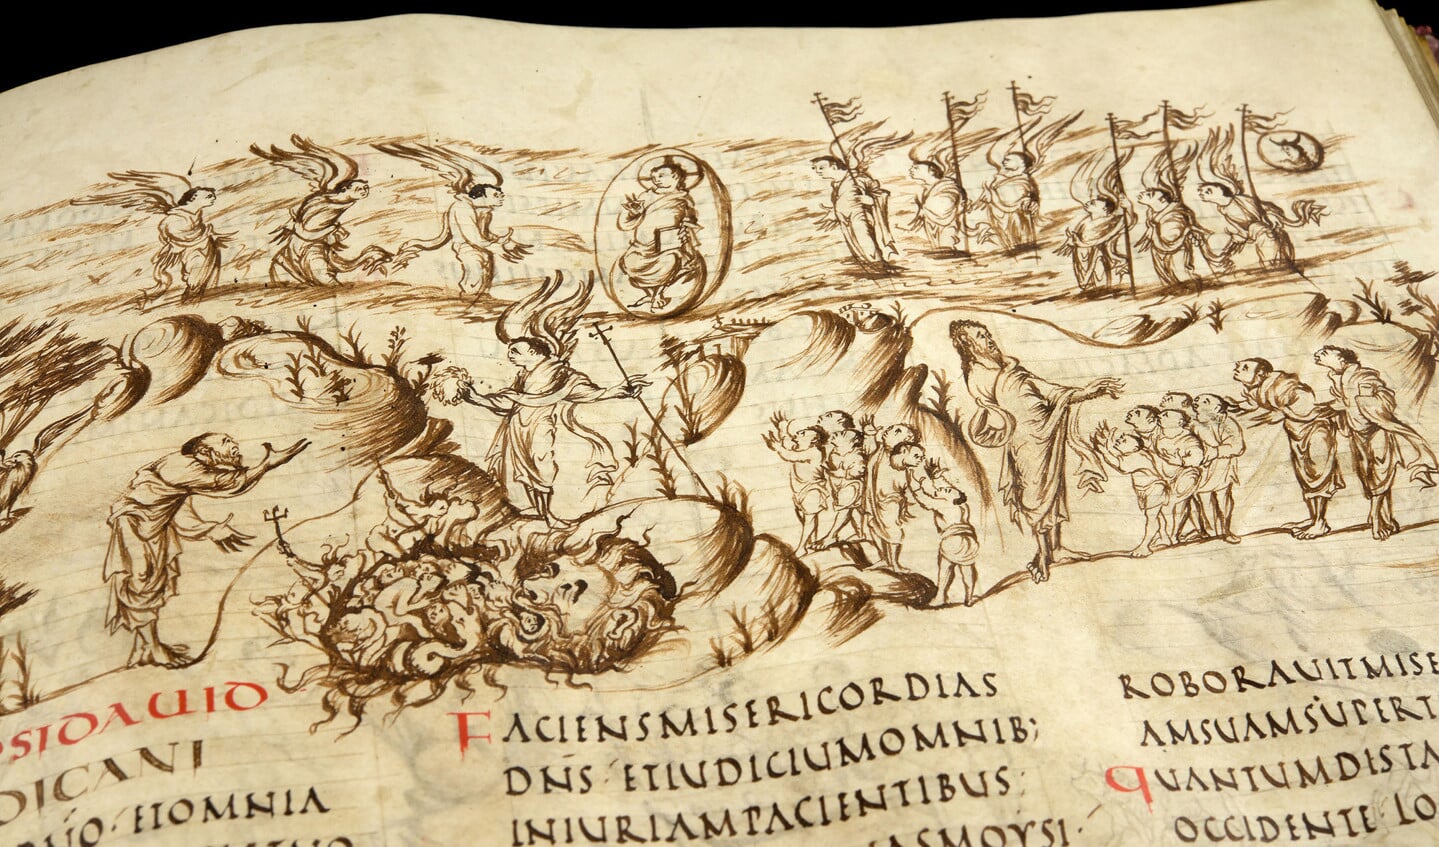 PSIDAUID
DICANI
ETOMNIA
FACIENSMISERICORDIAS
DNS·ETIUDICIUMOMNIB;
INIURIAMPACIENTIBUS:
ASMOYSI·
ROBORAUITMISE
AMSUAMSUPERT
QUANTUMDISTA
OCCIDENTE·LO